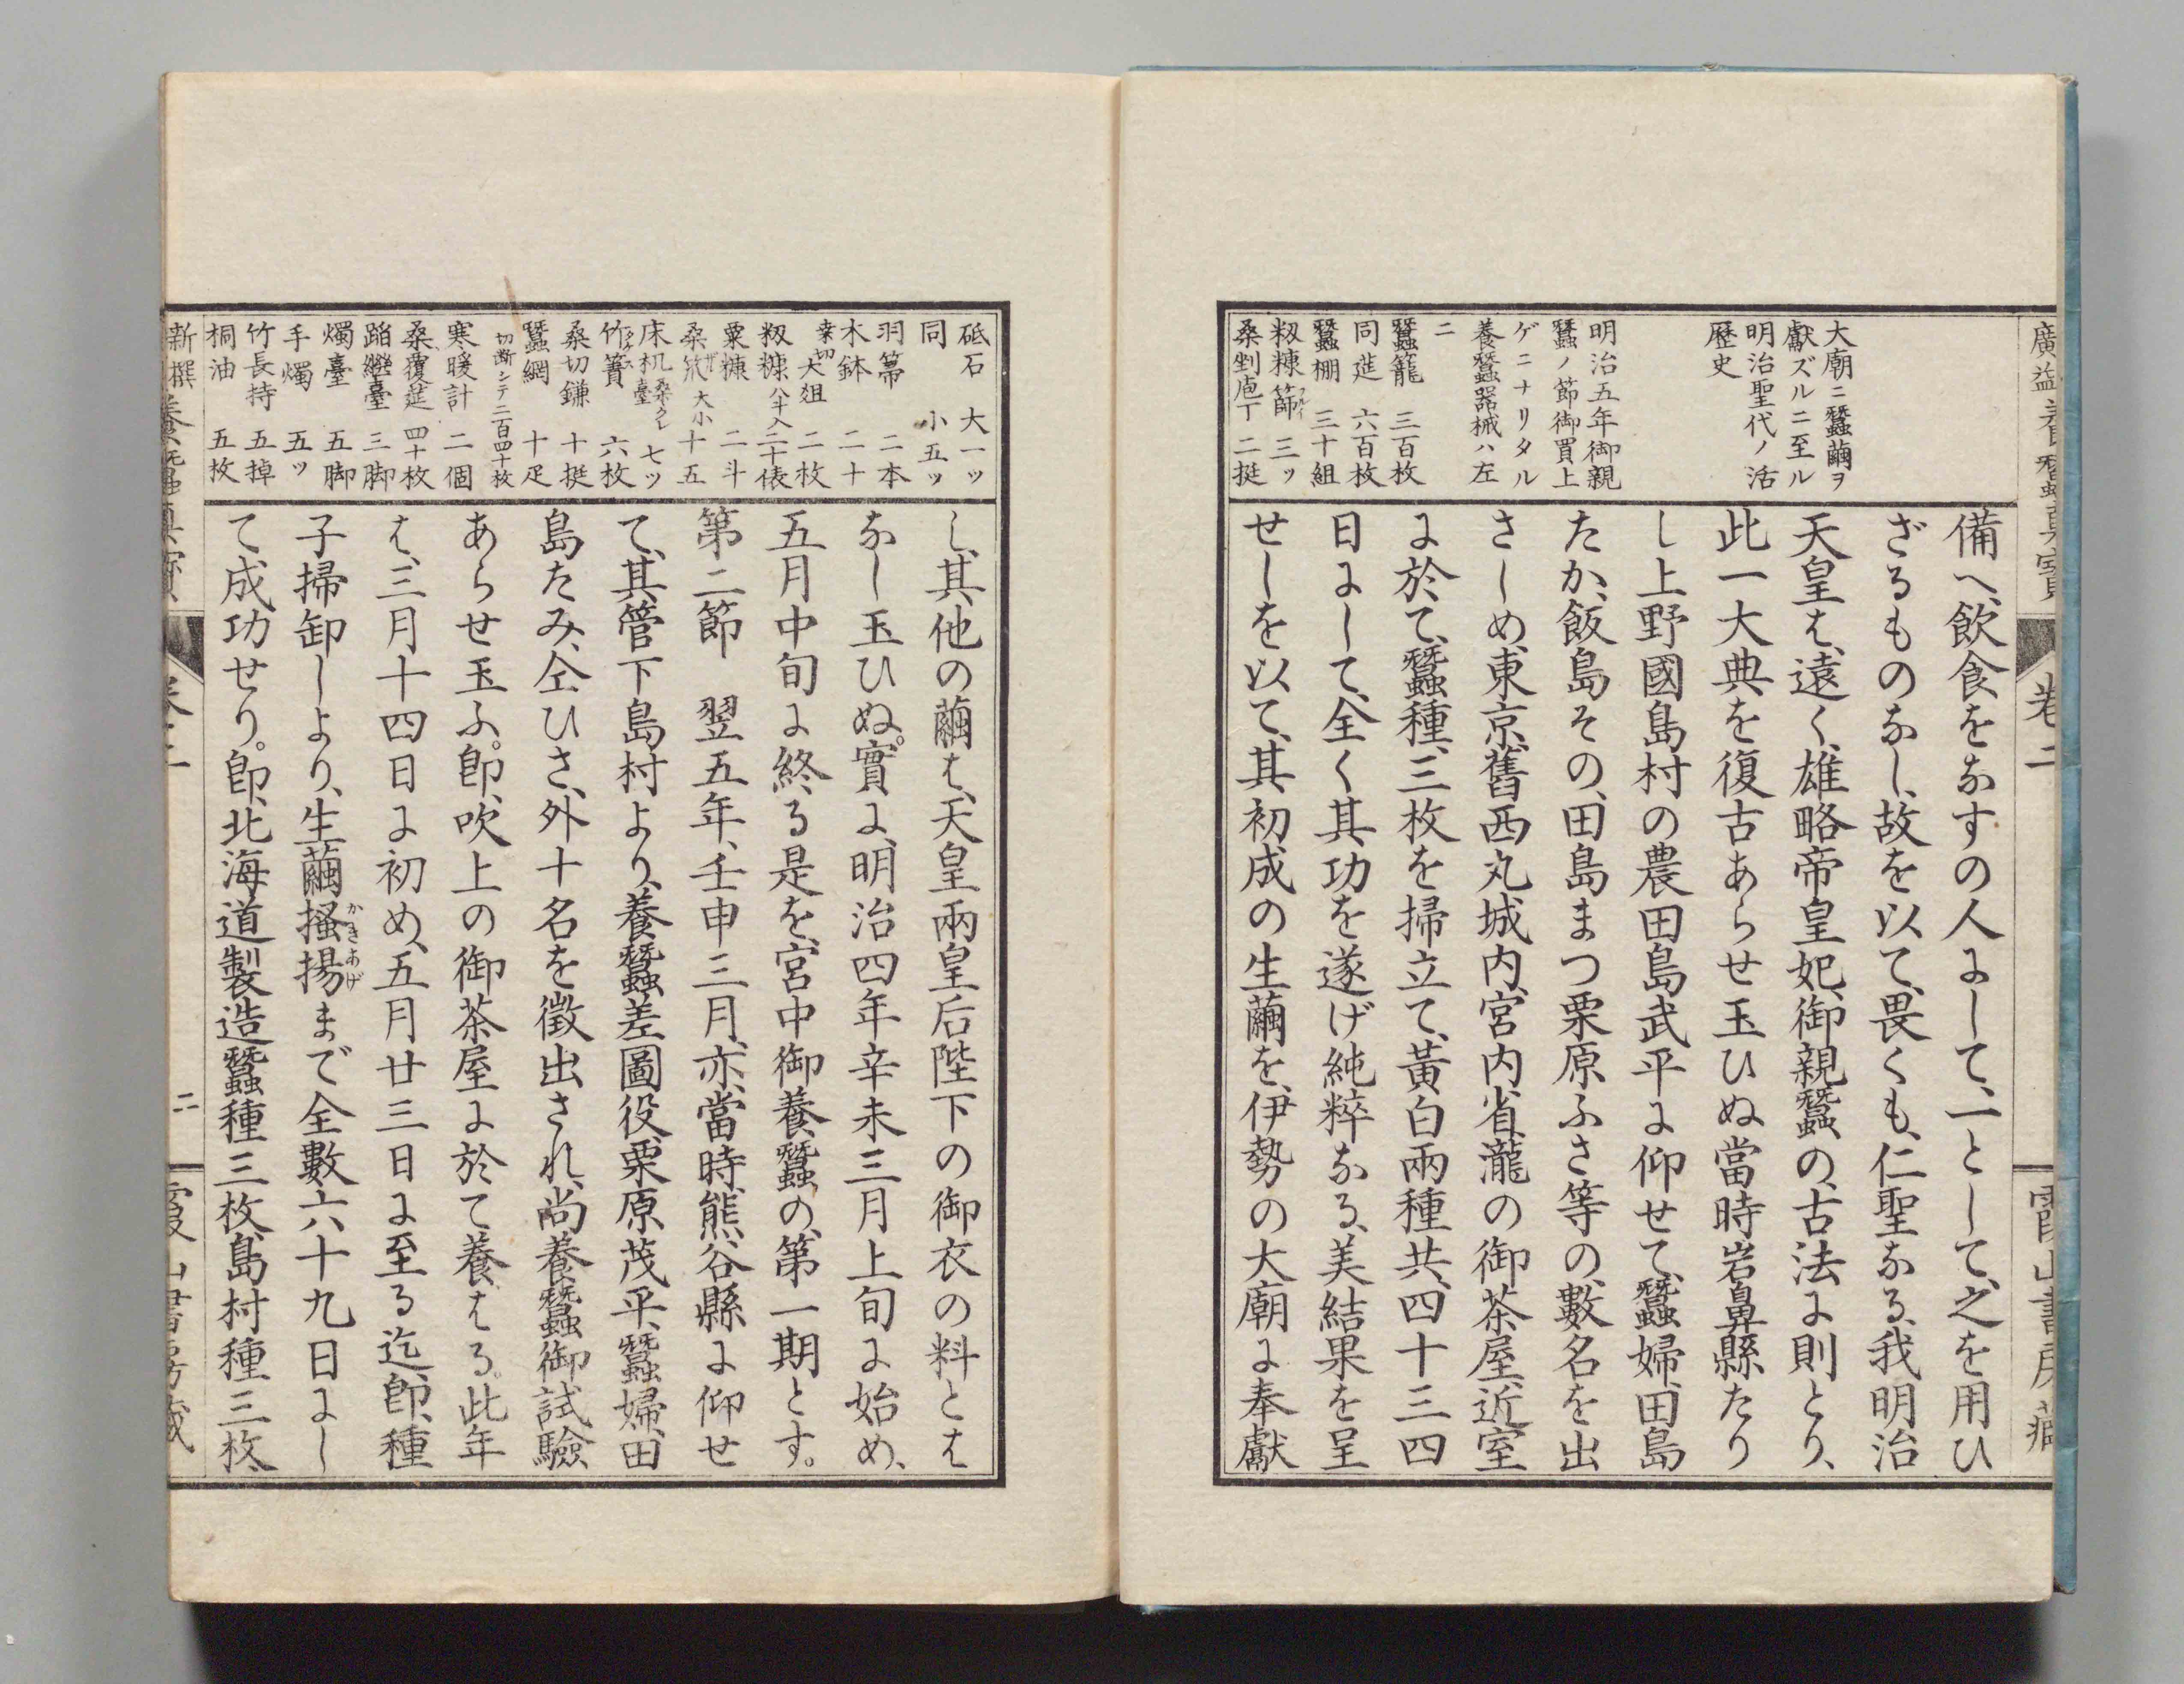 大廟ニ蠶繭ヲ
獻ズルニ至ル
明治聖代ノ活
歷史
明治五年御親
蠶ノ節御買上
ゲニナリタル
養蠶器械ハ左
ニ
蠶籠 三百枚
同莚 六百枚
蠶棚 三十組
籾糠篩 三ッ
桑剉庖丁 二挺
備へ、飲食をなすの人にして、一として、之を用ひ
ざるものなし、故を以て、畏くも、仁聖なる、我明治
天皇は、遠く、雄略帝皇妃、御親蠶の、古法に則とり、
此一大典を復古あらせ玉ひぬ當時岩鼻縣たり
し上野國島村の農田島武平に仰せて、蠶婦、田島
たか、飯島その、田島まつ栗原ふさ等の、數名を出
さしめ、東京、舊西丸城内、宮内省、瀧の御茶屋、近室
に於て、蠶種、三枚を掃立て、黃白兩種共、四十三四
日にして、全く其功を遂げ純粹なる、美結果を呈
せしを以て、其初成の生繭を、伊勢の大廟に奉獻
砥石 大一ッ
同 小五ッ
羽箒 二本
木鉢 二十
桑切大俎 二枚
籾糠 八斗入 二十俵
粟糠 二斗
桑笊 大小 十五
床机 桑クレ臺 七ッ
竹簀 六枚
桑切鎌 十挺
蠶網 十疋
切斷シテ二百四十枚
寒暖計 二個
桑覆莚 四十枚
踏繼臺 三脚
燭臺 五脚
手燭 五ッ
竹長持 五掉
桐油 五枚
し、其他の繭は、天皇兩皇后陛下の御衣の料とは
なし玉ひぬ。實に、明治四年辛未三月上旬に始め、
五月中旬に終る是を、宮中御養蠶の、第一期とす。
第二節 翌五年、壬申三月、亦、當時、熊谷縣に仰せ
て、其管下島村より、養蠶差圖役、栗原茂平、蠶婦、田
島たみ、仝ひさ、外十名を徵出され、尚養蠶御試驗
あらせ玉ふ。卽、吹上の御茶屋に於て養はる。此年
は、三月十四日に初め、五月廿三日に至る迄、卽、種
子掃卸しより、生繭搔揚まで全數六十九日にし
て、成功せり。卽、北海道製造蠶種三枚、島村種三枚、